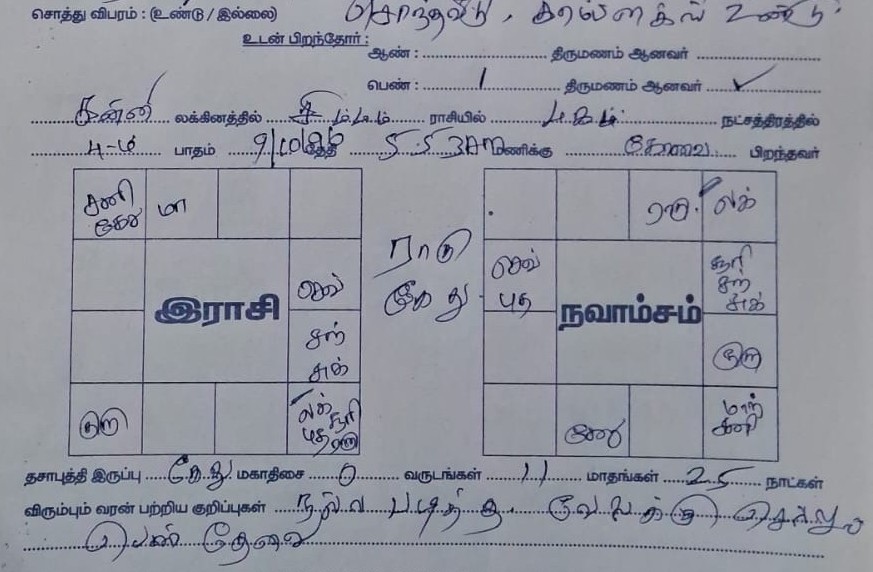 சொத்து விபரம் : (உண்டு / இல்லை) சொந்தவீடு, காம்ப்ளக்ஸ் உண்டு
உடன் பிறந்தோர் :
ஆண் : திருமணம் ஆனவர்
பெண் : 1 திருமணம் ஆனவர் ✓
கன்னி லக்கினத்தில் சிம்மம் ராசியில் மகம் நட்சத்திரத்தில்
4-ம் பாதம் 9/10/96 தேதி 5.53AM மணிக்கு கோவை பிறந்தவர்
சனி கேது மா
செவ்
சந் சுக்
குரு லக் சூரி புத ராகு
இராசி
ராகு
கேது
ராகு லக்
செவ் புத சூரி சந் சுக்
குரு
கேது மாந் சனி
நவாம்சம்
தசாபுத்தி இருப்பு கேது மகாதிசை 0 வருடங்கள் 11 மாதங்கள் 25 நாட்கள்
விரும்பும் வரன் பற்றிய குறிப்புகள் நல்ல படித்த. வேலக்கு செல்லும்
பெண் தேவை